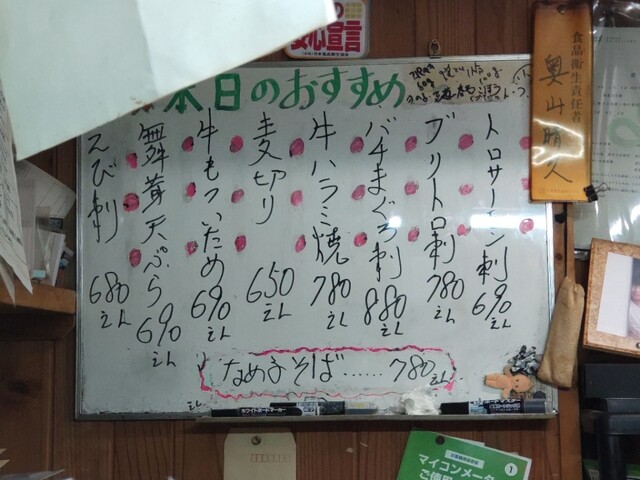 本日のおすすめ
トロサーモン刺 690えん
ブリトロ刺 780えん
バチまぐろ刺 880えん
牛ハラミ焼 780えん
麦切り 650えん
牛もついため 690えん
舞茸天ぷら 690えん
えび刺 680えん
なめこそば……780えん
安心宣言
食品衛生責任者
奥山晴人
ホワイトボードマーカー
マイコンメータ
ご使用
1